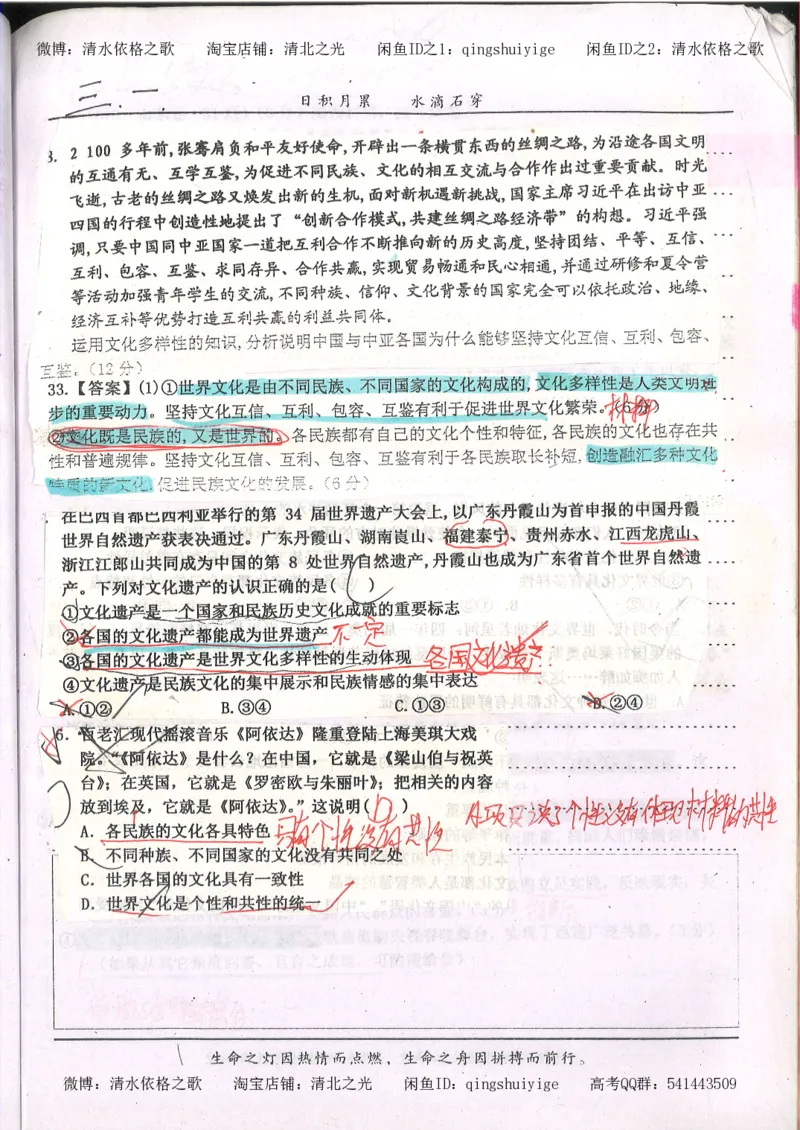 微博：清水依格之歌 淘宝店铺：清北之光 闲鱼ID之1：qingshuiyige 闲鱼ID之2：清水依格之歌
三.一
日积月累 水滴石穿
8. 2 100 多年前,张骞肩负和平友好使命,开辟出一条横贯东西的丝绸之路,为沿途各国文明
的互通有无、互学互鉴,为促进不同民族、文化的相互交流与合作作出过重要贡献。时光
飞逝,古老的丝绸之路又焕发出新的生机,面对新机遇新挑战,国家主席习近平在出访中亚
四国的行程中创造性地提出了“创新合作模式,共建丝绸之路经济带”的构想。习近平强
调,只要中国同中亚国家一道把互利合作不断推向新的历史高度,坚持团结、平等、互信、
互利、包容、互鉴、求同存异、合作共赢,实现贸易畅通和民心相通,并通过研修和夏令营
等活动加强青年学生的交流,不同种族、信仰、文化背景的国家完全可以依托政治、地缘、
经济互补等优势打造互利共赢的利益共同体。
运用文化多样性的知识,分析说明中国与中亚各国为什么能够坚持文化互信、互利、包容、
互鉴。(12 分)
33.【答案】(1)①世界文化是由不同民族、不同国家的文化构成的,文化多样性是人类文明进
步的重要动力。坚持文化互信、互利、包容、互鉴有利于促进世界文化繁荣。(6 分)
②文化既是民族的,又是世界的。各民族都有自己的文化个性和特征,各民族的文化也存在共
性和普遍规律。坚持文化互信、互利、包容、互鉴有利于各民族取长补短,创造融汇多种文化
特质的新文化,促进民族文化的发展。(6 分)
在巴西首都巴西利亚举行的第 34 届世界遗产大会上,以广东丹霞山为首申报的中国丹霞
世界自然遗产获表决通过。广东丹霞山、湖南崀山、福建泰宁、贵州赤水、江西龙虎山、
浙江江郎山共同成为中国的第 8 处世界自然遗产,丹霞山也成为广东省首个世界自然遗
产。下列对文化遗产的认识正确的是( )
①文化遗产是一个国家和民族历史文化成就的重要标志
②各国的文化遗产都能成为世界遗产 不一定
③各国的文化遗产是世界文化多样性的生动体现 各国文化遗产
④文化遗产是民族文化的集中展示和民族情感的集中表达
A.①② B.③④ C.①③ D.②④
6. 百老汇现代摇滚音乐《阿依达》隆重登陆上海美琪大戏
院。“《阿依达》是什么？在中国，它就是《梁山伯与祝英
台》；在英国，它就是《罗密欧与朱丽叶》；把相关的内容
放到埃及，它就是《阿依达》。”这说明( D )
A项只谈了个性没有体现材料的共性
A．各民族的文化各具特色 只有个性没有共性
B．不同种族、不同国家的文化没有共同之处
C．世界各国的文化具有一致性
D．世界文化是个性和共性的统一
生命之灯因热情而点燃，生命之舟因拼搏而前行。
微博：清水依格之歌 淘宝店铺：清北之光 闲鱼ID：qingshuiyige 高考QQ群：541443509